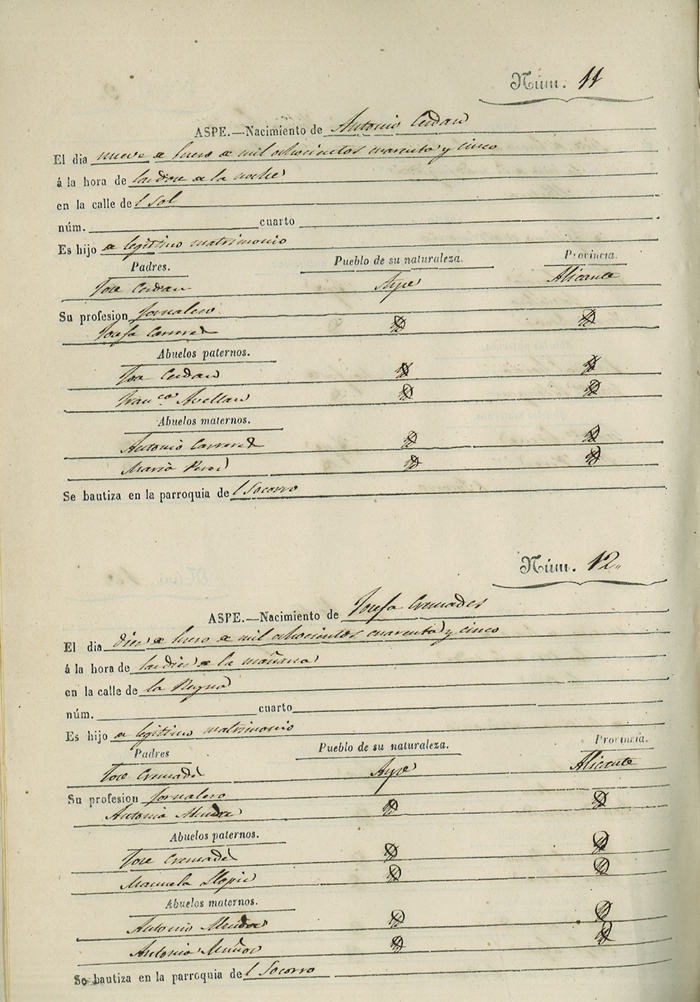 Núm. 11
ASPE.—Nacimiento de Antonio Cerdan
El dia nueve de Enero de mil ochocientos cuarenta y cinco
á la hora de las doce de la noche
en la calle del Sol
núm. cuarto
Es hijo de legitimo matrimonio
Padres. Pueblo de su naturaleza. Provincia.
Jose Cerdan Aspe Alicante
Su profesion Jornalero
Josefa
Abuelos paternos.
Jose Cerdan
Franca Avellan
Abuelos maternos.
Antonio
Maria Perez
Se bautiza en la parroquia del Socorro
Núm. 12
ASPE.—Nacimiento de Josefa Cremades
El dia diez de Enero de mil ochocientos cuarenta y cinco
á la hora de las diez de la mañana
en la calle de la Reyna
núm. cuarto
Es hijo de legitimo matrimonio
Padres Pueblo de su naturaleza. Provincia.
Jose Cremades Aspe Alicante
Su profesion Jornalero
Antonia
Abuelos paternos.
Jose Cremades
Manuela
Abuelos maternos.
Antonio
Antonia
Se bautiza en la parroquia del Socorro